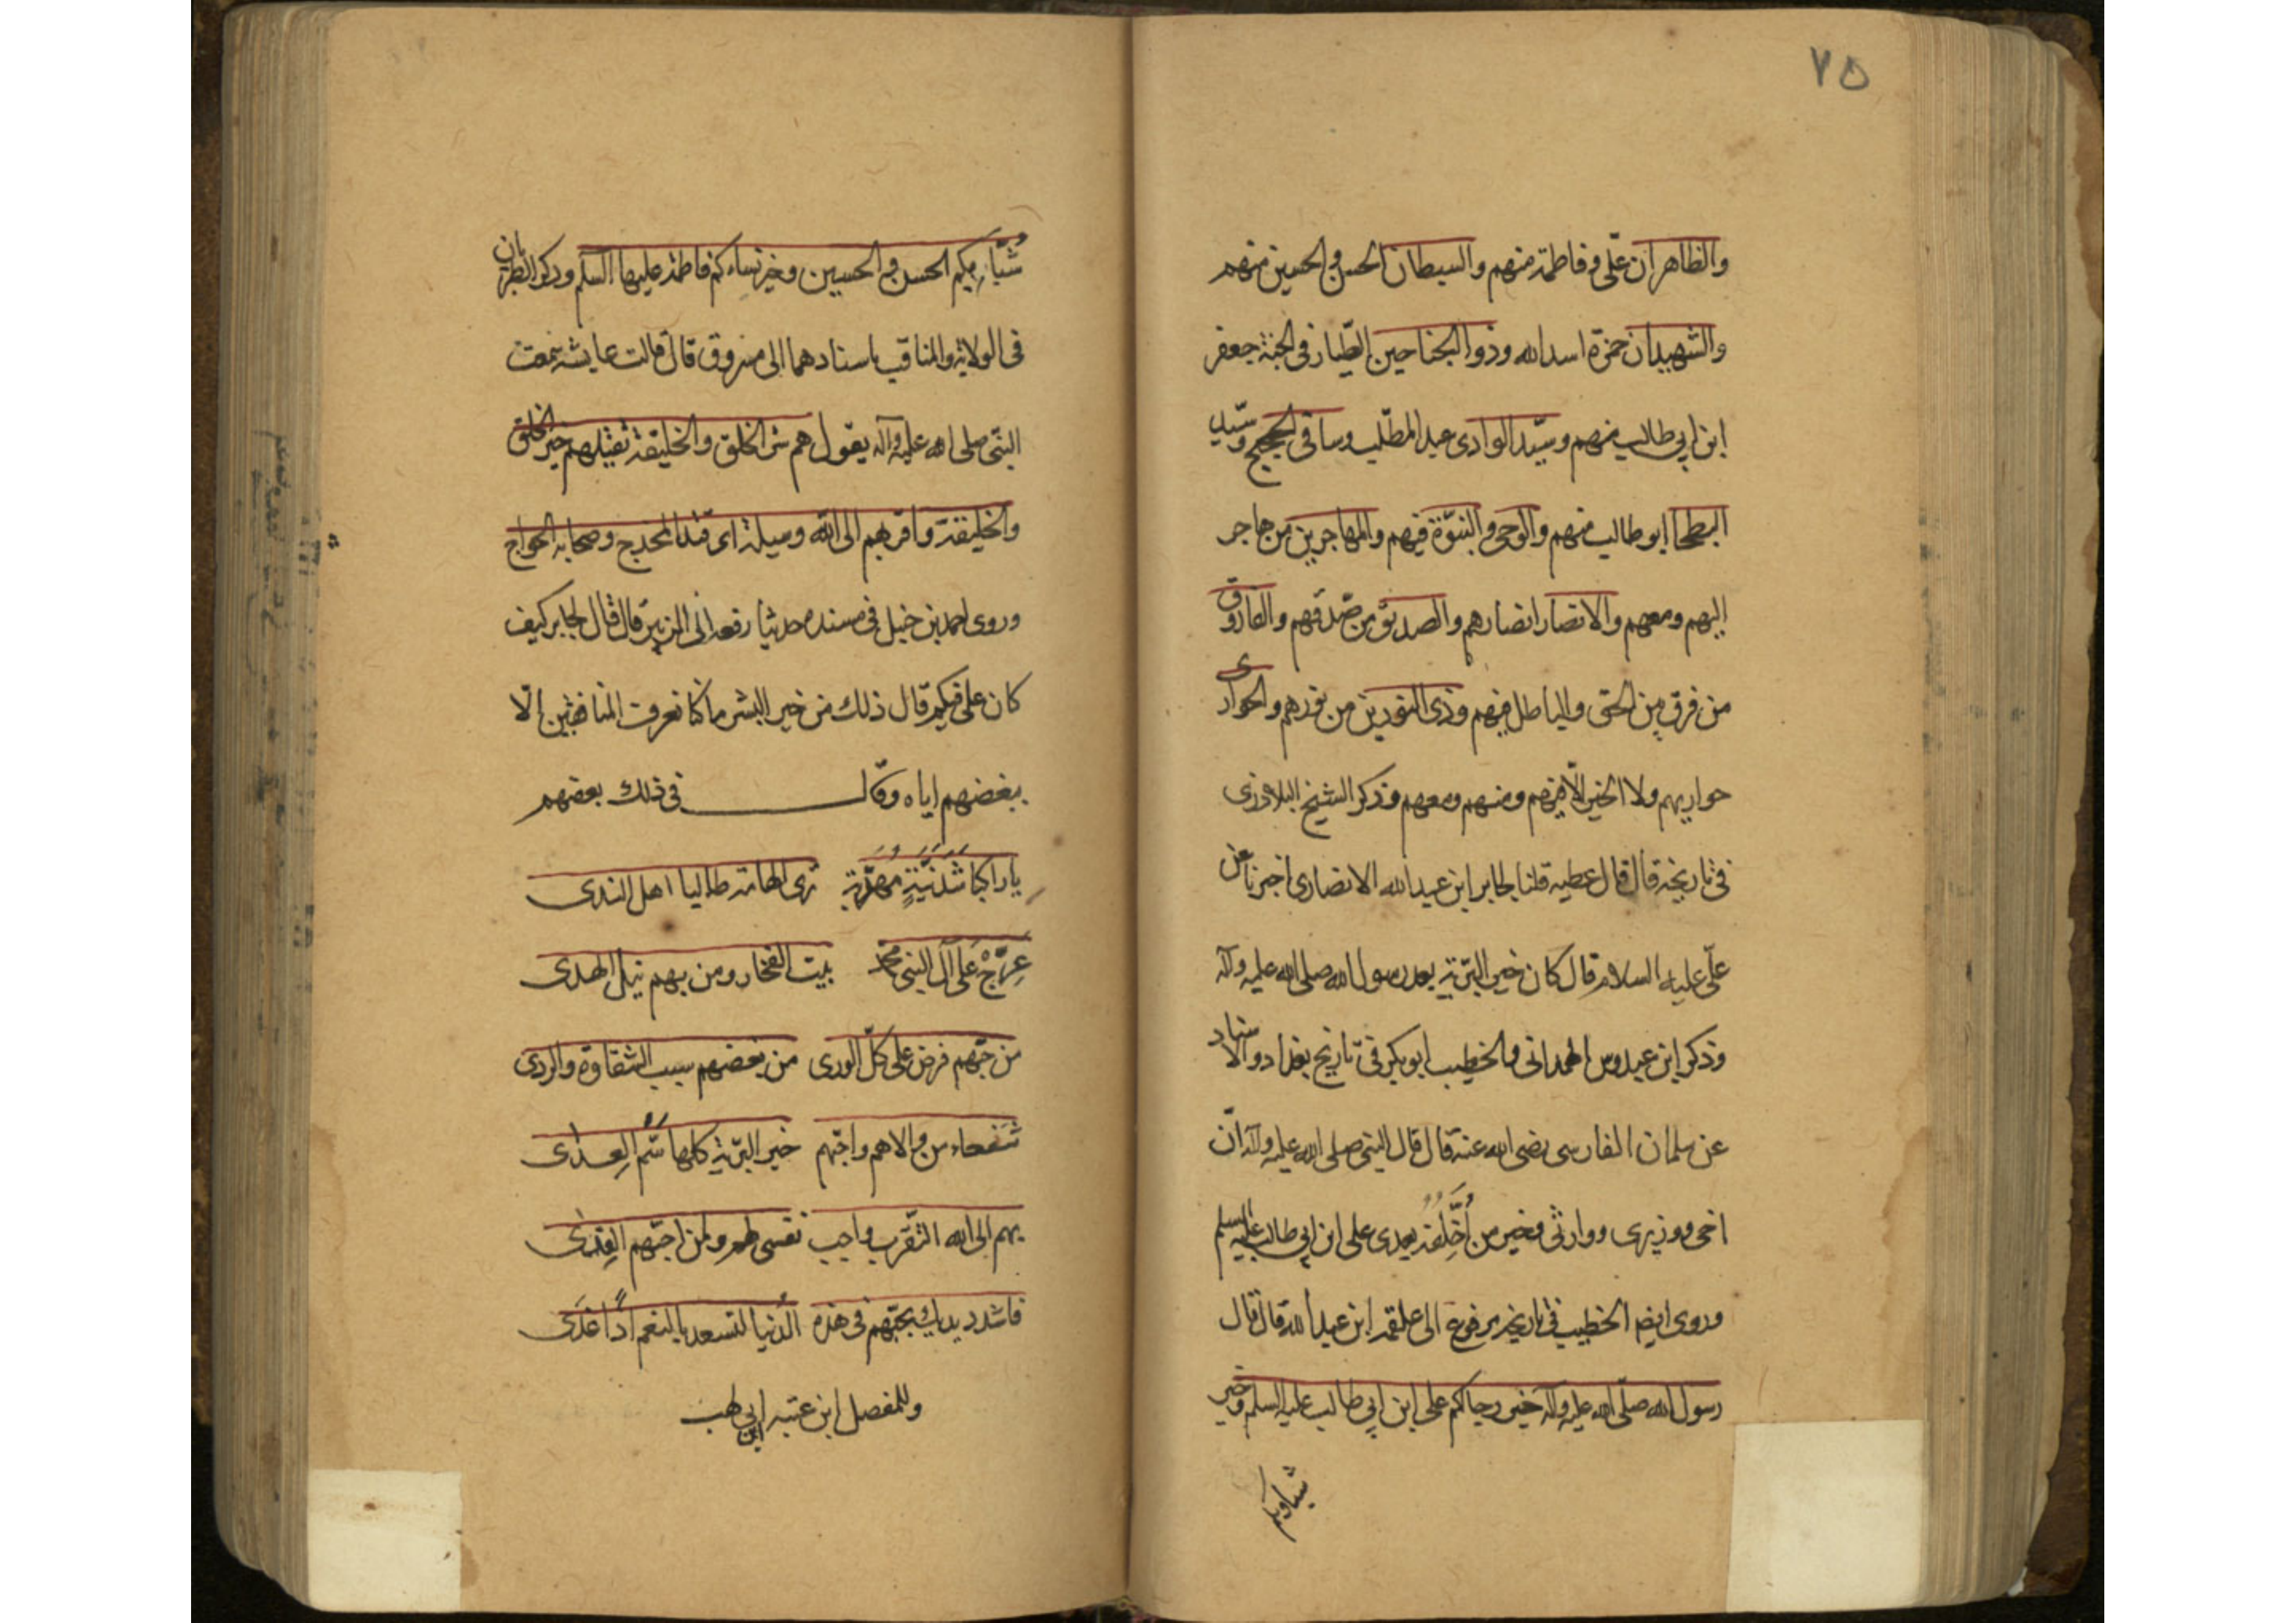 ٧٥
والطاهران علی و فاطمة منهم والسبطان الحسن و الحسین منهم
والشهیدان حمزة اسد الله وذو الجناحین الطیار فی الجنة جعفر
ابن ابی طالب منهم وسیّد الوادی عبد المطّلب وساقی الحجیج وسیّد
البطحا ابو طالب منهم والوحی و النبوّة فیهم والمهاجرین من هاجر
الیهم ومعهم والانصار انصارهم والصدیق من صدّقهم والفاروق
من فرق بین الحق والباطل فیهم وذی النورین من نورهم والحواری
حواریهم ولا الخیر الّا فیهم ومنهم ومعهم وذکر الشیخ البلاذری
فی تاریخه قال قال عطیه قلنا لجابر ابن عبد الله الانصاری اخبرنا عن
علّی علیه السلام قال کان خیر البرّیة بعد رسول الله صلی الله علیه وآله
وذکر ابن عبدوس الهمدانی والخطیب ابو بکر فی تاریخ بغداد والاسناد
عن سلمان الفارسی رضی الله عنه قال قال النبی صلی الله علیه وآله انّ
اخی ووزیری ووارثی وخیر من أُخَلِّفُهُ بعدی علی ابن ابی طالب علیه السلم
وروی ایضا الخطیب فی تاریخه مرفوع الی علقمه ابن عبد الله قال قال
رسول الله صلّی الله علیه وآله خیر رجالکم علی ابن ابی طالب علیه السلم وخیر
شُبّابکم الحسن و الحسین وخیر نساءکم فاطمة علیها السلم وذکر الطبریان
فی الولایة والمناقب باسنادهما الی مسروق قال قالت عایشه سمعت
النبّی صلی الله علیه وآله یقول هم شر الخلق والخلیقة یقتلهم خیر الخلق
والخلیقة واقربهم الی الله وسیلة ای قتله المخدج وصحابه الخواج
وروی احمد بن حنبل فی مسنده حدیثا رفعه الی الزبیر قال قال لجابر کیف
کان علی فیکم قال ذلك من خیر البشر ما کنا نعرف المنافقین الّا
ببغضهم ایاه وقال فی ذلك بعضهم
یا راکبا شَدَنِیَّةٍ مَهریّة تری الهامة طالبا اهل الندی
عَرِّجْ عَلی آل النبی محمد بیت الفخار ومن بهم نیل الهدی
من حبّهم فرض علی کلّ الوری من بغضهم سبب الشقاوة والردی
شفعاء من والاهم واحبّهم خیر البرّیة کلها سُمّ العِدی
بهم الی الله التقرب واجب نفسی لهم ولمن احبّهم الفِدی
فاشدد یدیك بحبّهم فی هذه الدُنیا لتسعد بالنعم اذًا غَدَی
وللمفصل ابن عتبه ابن ابی لهب